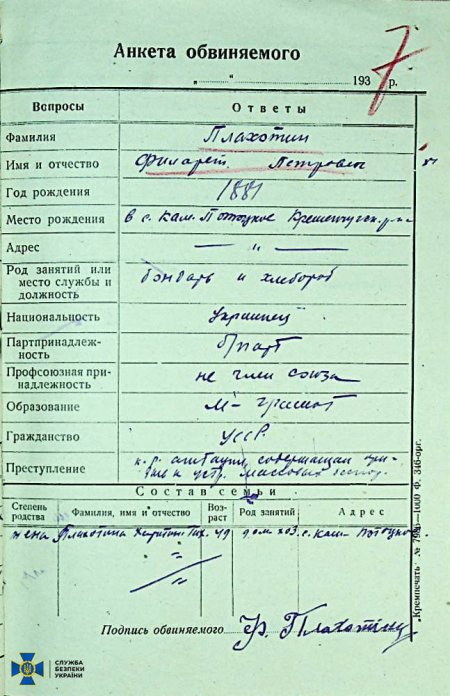 Анкета обвиняемого
" 1937 р.
Вопросы Ответы
Фамилия Плахотин
Имя и отчество Филарет Петрович
Год рождения 1881
Место рождения в с. Кам. Потоцкое Кременчугск. р-на
Адрес — " —
Род занятий или место службы и должность бондарь и хлебороб
Национальность Украинец
Партпринадлежность б/парт
Профсоюзная принадлежность не член союза
Образование М-грамот
Гражданство УССР
Преступление к.р. агитация содержащая
массовых
Состав семьи
Степень родства Фамилия, имя и отчество Возраст Род занятий Адрес
жена Плахотина 49 дом. хоз. с. Кам-Потоцкое
"
"
Подпись обвиняемого Ф. Плахотин
„Кремпечать" № 1000 Ф. 346-орг.
СЛУЖБА
БЕЗПЕКИ
УКРАЇНИ